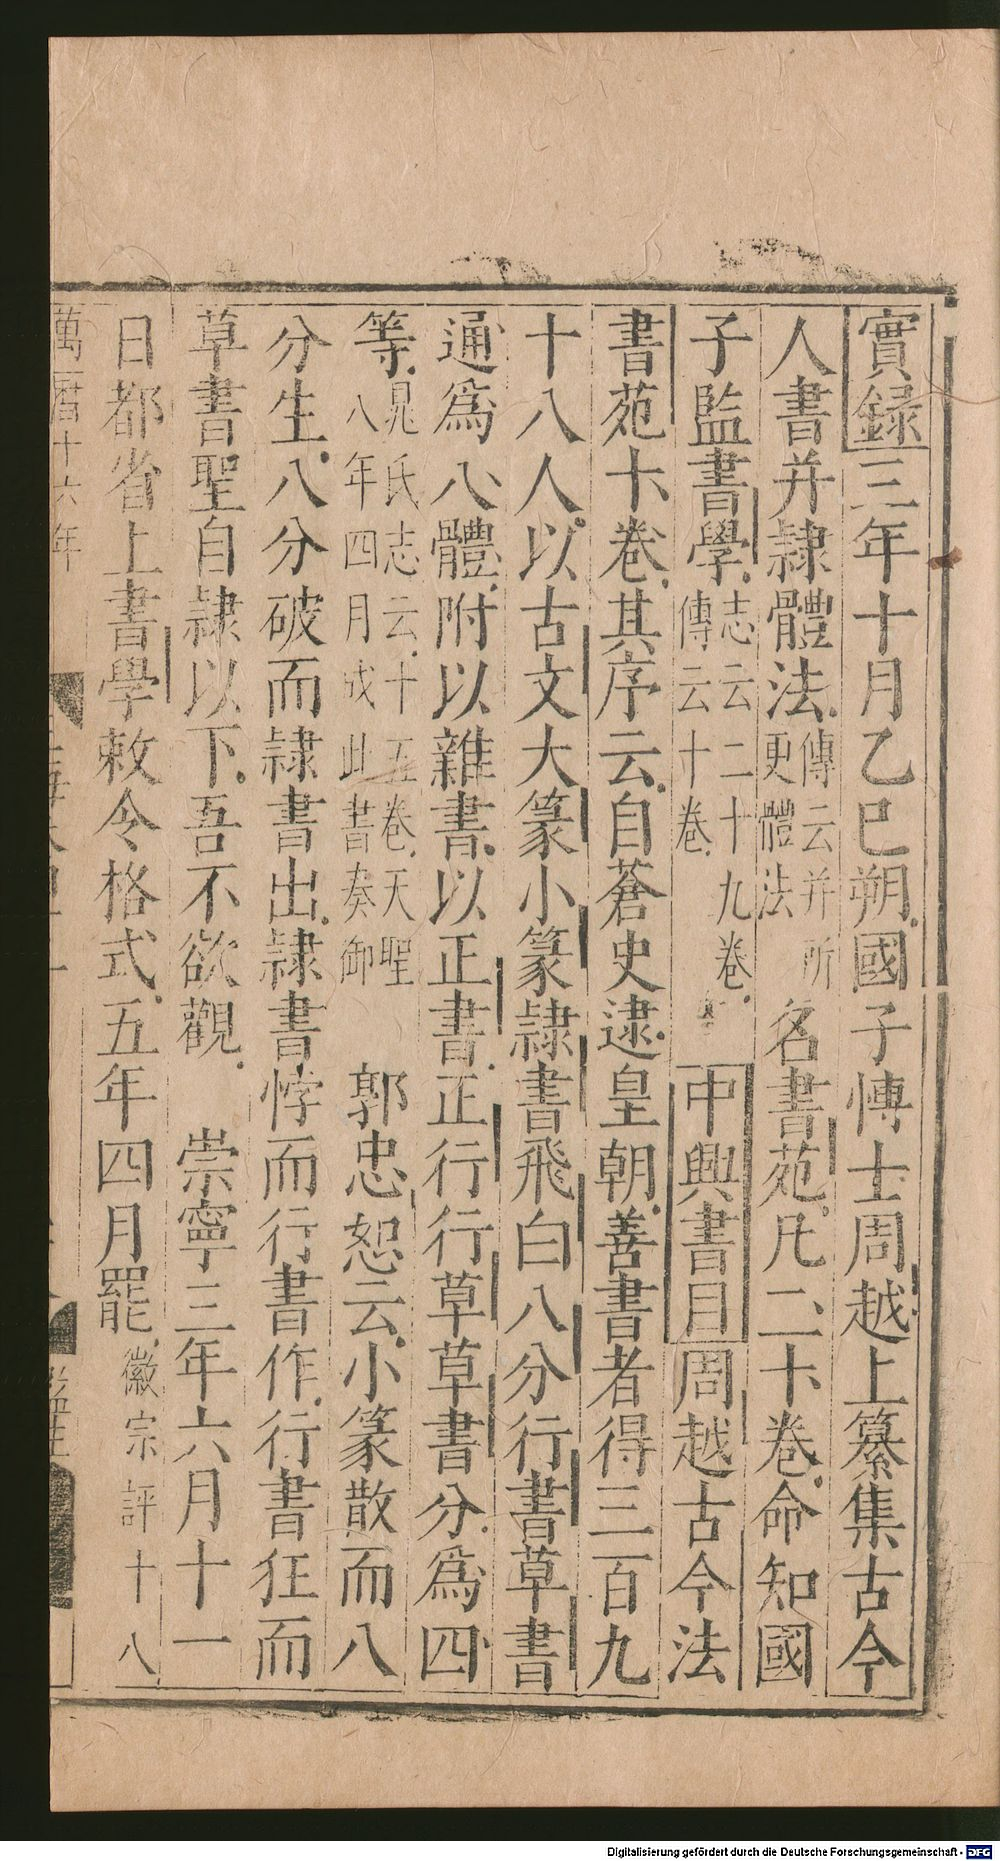 實録三年十月乙巳朔國子博士周越上纂集古今
人書并隷體法傳云并所更體法名書苑凡二十卷命知國
子監書學志云二十九卷傳云十卷中興書目周越古今法
書苑十卷其序云自蒼史逮皇朝善書者得三百九
十八人以古文大篆小篆隷書飛白八分行書草書
通爲八體附以雜書以正書正行行草草書分爲四
等晁氏志云十五卷天聖八年四月成此書奏御郭忠恕云小篆散而八
分生八分破而隷書出隷書悖而行書作行書狂而
草書聖自隷以下吾不欲觀崇寧三年六月十一
日都省上書學敕令格式五年四月罷徽宗評十八
萬曆十六年
Digitalisierung gefördert durch die Deutsche Forschungsgemeinschaft - DFG